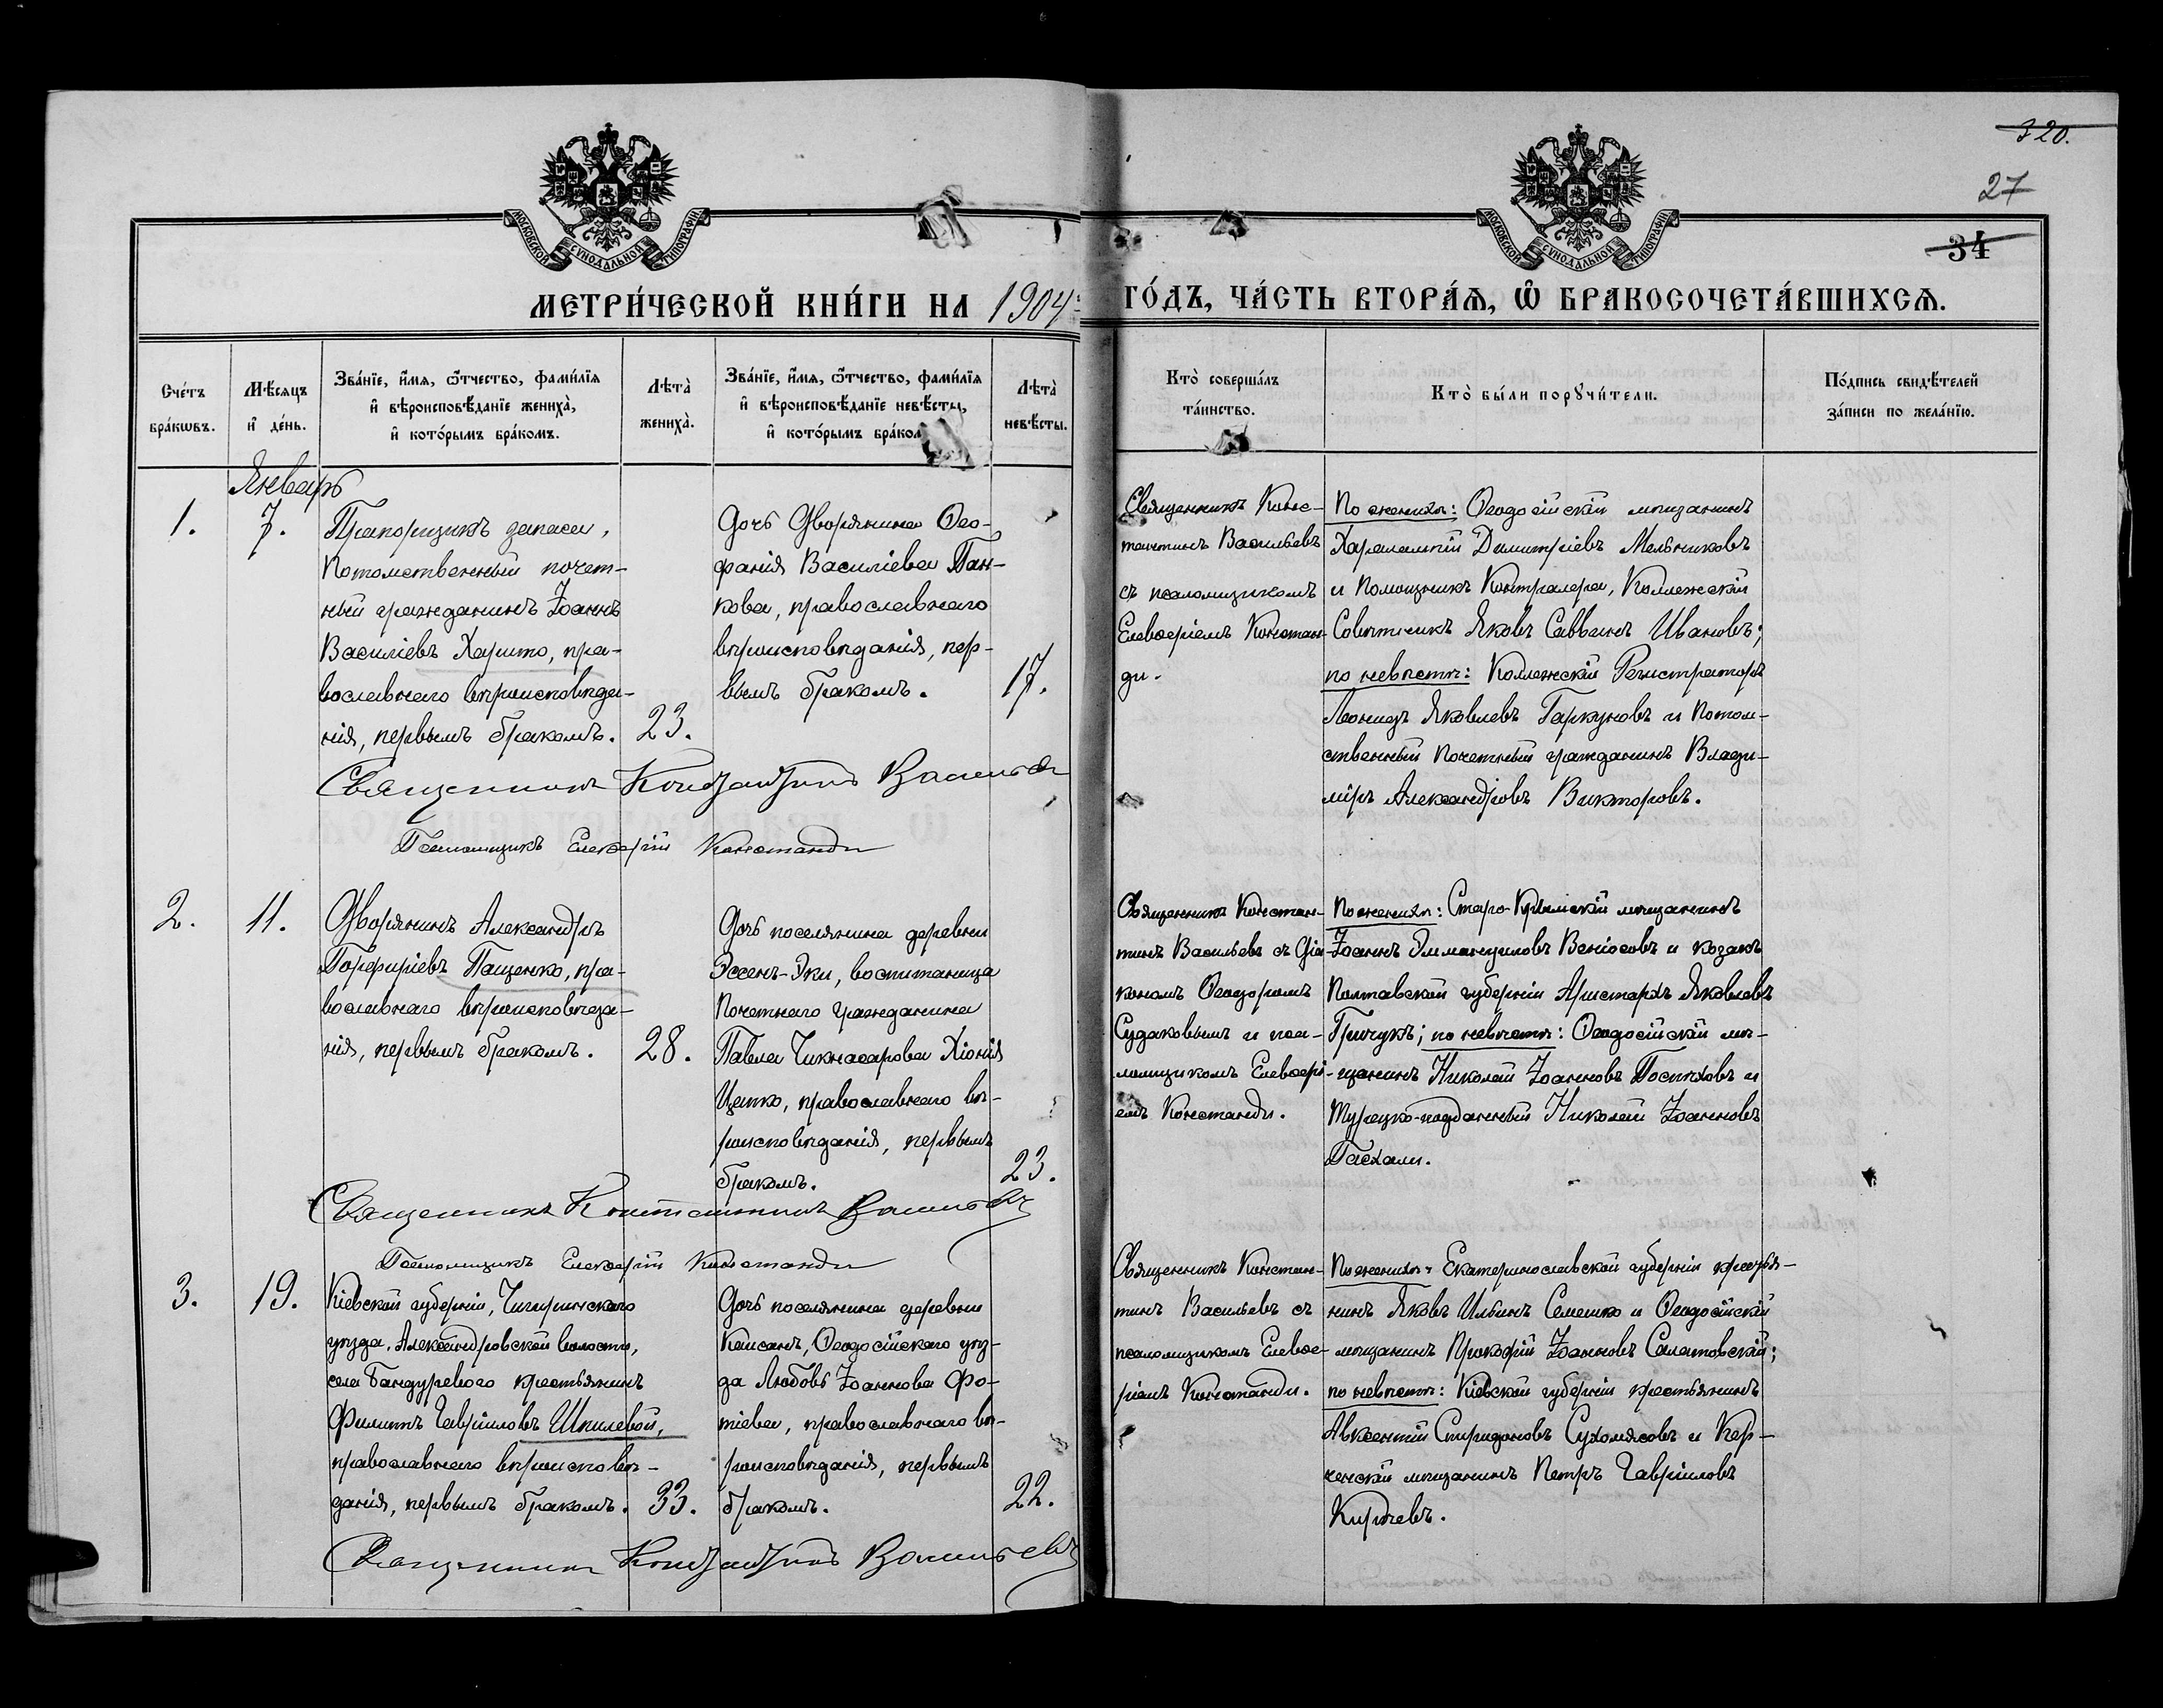 320.
27
34
МОСКОВСКОЙ СѴНОДАЛЬНОЙ ТИПОГРАФІИ
МОСКОВСКОЙ СѴНОДАЛЬНОЙ ТИПОГРАФІИ
МЕТРИ́ЧЕСКОЙ КНИ́ГИ НА 1904
ГО́ДЪ, ЧА́СТЬ ВТОРА́Ѧ, Ѡ҆ БРАКОСОЧЕТА́ВШИХСѦ.
Сче́тъ бра́кωвъ.
Мѣ́сяцъ и҆ де́нь.
Зва́нїе, и҆́мя, ѻ҆́тчество, фами́лїя и҆ вѣроисповѣ́данїе жениха̀, и҆ кото́рымъ бра́комъ.
Лѣта̀ жениха̀.
Зва́нїе, и҆́мя, ѻ҆́тчество, фами́лїя и҆ вѣроисповѣ́данїе невѣ́сты, и҆ кото́рымъ бра́ком
Лѣта̀ невѣ́сты.
Кто̀ соверша́лъ та́инство.
Кто̀ бы́ли порꙋчи́тели.
По́дпись свидѣ́телей за́писи по жела́нїю.
Январь
1.
7.
Прапорщикъ запаса,
потомственный почет-
ный гражданинъ Іоаннъ
Василіевъ Харито, пра-
вославнаго вѣроисповѣда-
нія, первымъ бракомъ.
23.
Дочь Дворянина Ѳео-
фанія Василіева Пан-
кова, православнаго
вѣроисповѣданія, пер-
вымъ бракомъ.
17.
Священникъ Конс-
тантинъ Васильевъ
съ псаломщикомъ
Елевѳеріемъ Констан-
ди.
По женихѣ: Ѳеодосійскій мѣщанинъ
Харалампій Димитріевъ Мельниковъ
и Помощникъ Контролера, Коллежскій
Совѣтникъ Яковъ Саввинъ Ивановъ;
по невѣстѣ: Коллежскій Регистраторъ
Леонидъ Яковлевъ Гаркуновъ и Потом-
ственный Почетный гражданинъ Влади-
міръ Александровъ Викторовъ.
Священникъ Константинъ Васильевъ
Псаломщикъ Елевѳерій Констанди
2.
11.
Дворянинъ Александръ
Порфиріевъ Пащенко, пра-
вославнаго вѣроисповѣда-
нія, первымъ бракомъ.
28.
Дочь поселянина деревни
Эссенъ-Эки, воспитаница
Почетнаго гражданина
Павла Чикназарова Хіонія
Цапко, православнаго вѣ-
роисповѣданія, первымъ
бракомъ.
23.
Священникъ Констан-
тинъ Васильевъ съ Діа-
кономъ Ѳеодоромъ
Судаковымъ и пса-
ломщикомъ Елевѳері-
емъ Констанди.
По женихѣ: Старо-Крымскій мѣщанинъ
Іоаннъ Эммануиловъ Веніосовъ и козакъ
Полтавской губерніи Аристархъ Яковлевъ
Гричукъ; по невѣстѣ: Ѳеодосійскій мѣ-
щанинъ Николай Іоанновъ Посиховъ и
Турецко-подданный Николай Іоанновъ
Пасхали.
Священникъ Константинъ Васильевъ
Псаломщикъ Елевѳерій Констанди
3.
19.
Кіевской губерніи, Чигиринскаго
уѣзда, Александровской волости,
села Бандурового крестьянинъ
Филиппъ Гавріиловъ Шпилевой,
православнаго вѣроисповѣ-
данія, первымъ бракомъ.
33.
Дочь поселянина деревни
Камсанъ, Ѳеодосійскаго уѣз-
да Любовь Іоаннова Фо-
тіева, православнаго вѣ-
роисповѣданія, первымъ
бракомъ.
22.
Священникъ Констан-
тинъ Васильевъ съ
псаломщикомъ Елевѳе-
ріемъ Констанди.
По женихѣ: Екатеринославской губерніи крестья-
нинъ Яковъ Ильинъ Семешко и Ѳеодосійскій
мѣщанинъ Прокофій Іоанновъ Салатовскій;
по невѣстѣ: Кіевской губерніи крестьянинъ
Авксентій Спиридоновъ Сухомясовъ и Кер-
ченскій мѣщанинъ Петръ Гавріиловъ
Киржевъ.
Священникъ Константинъ Васильевъ